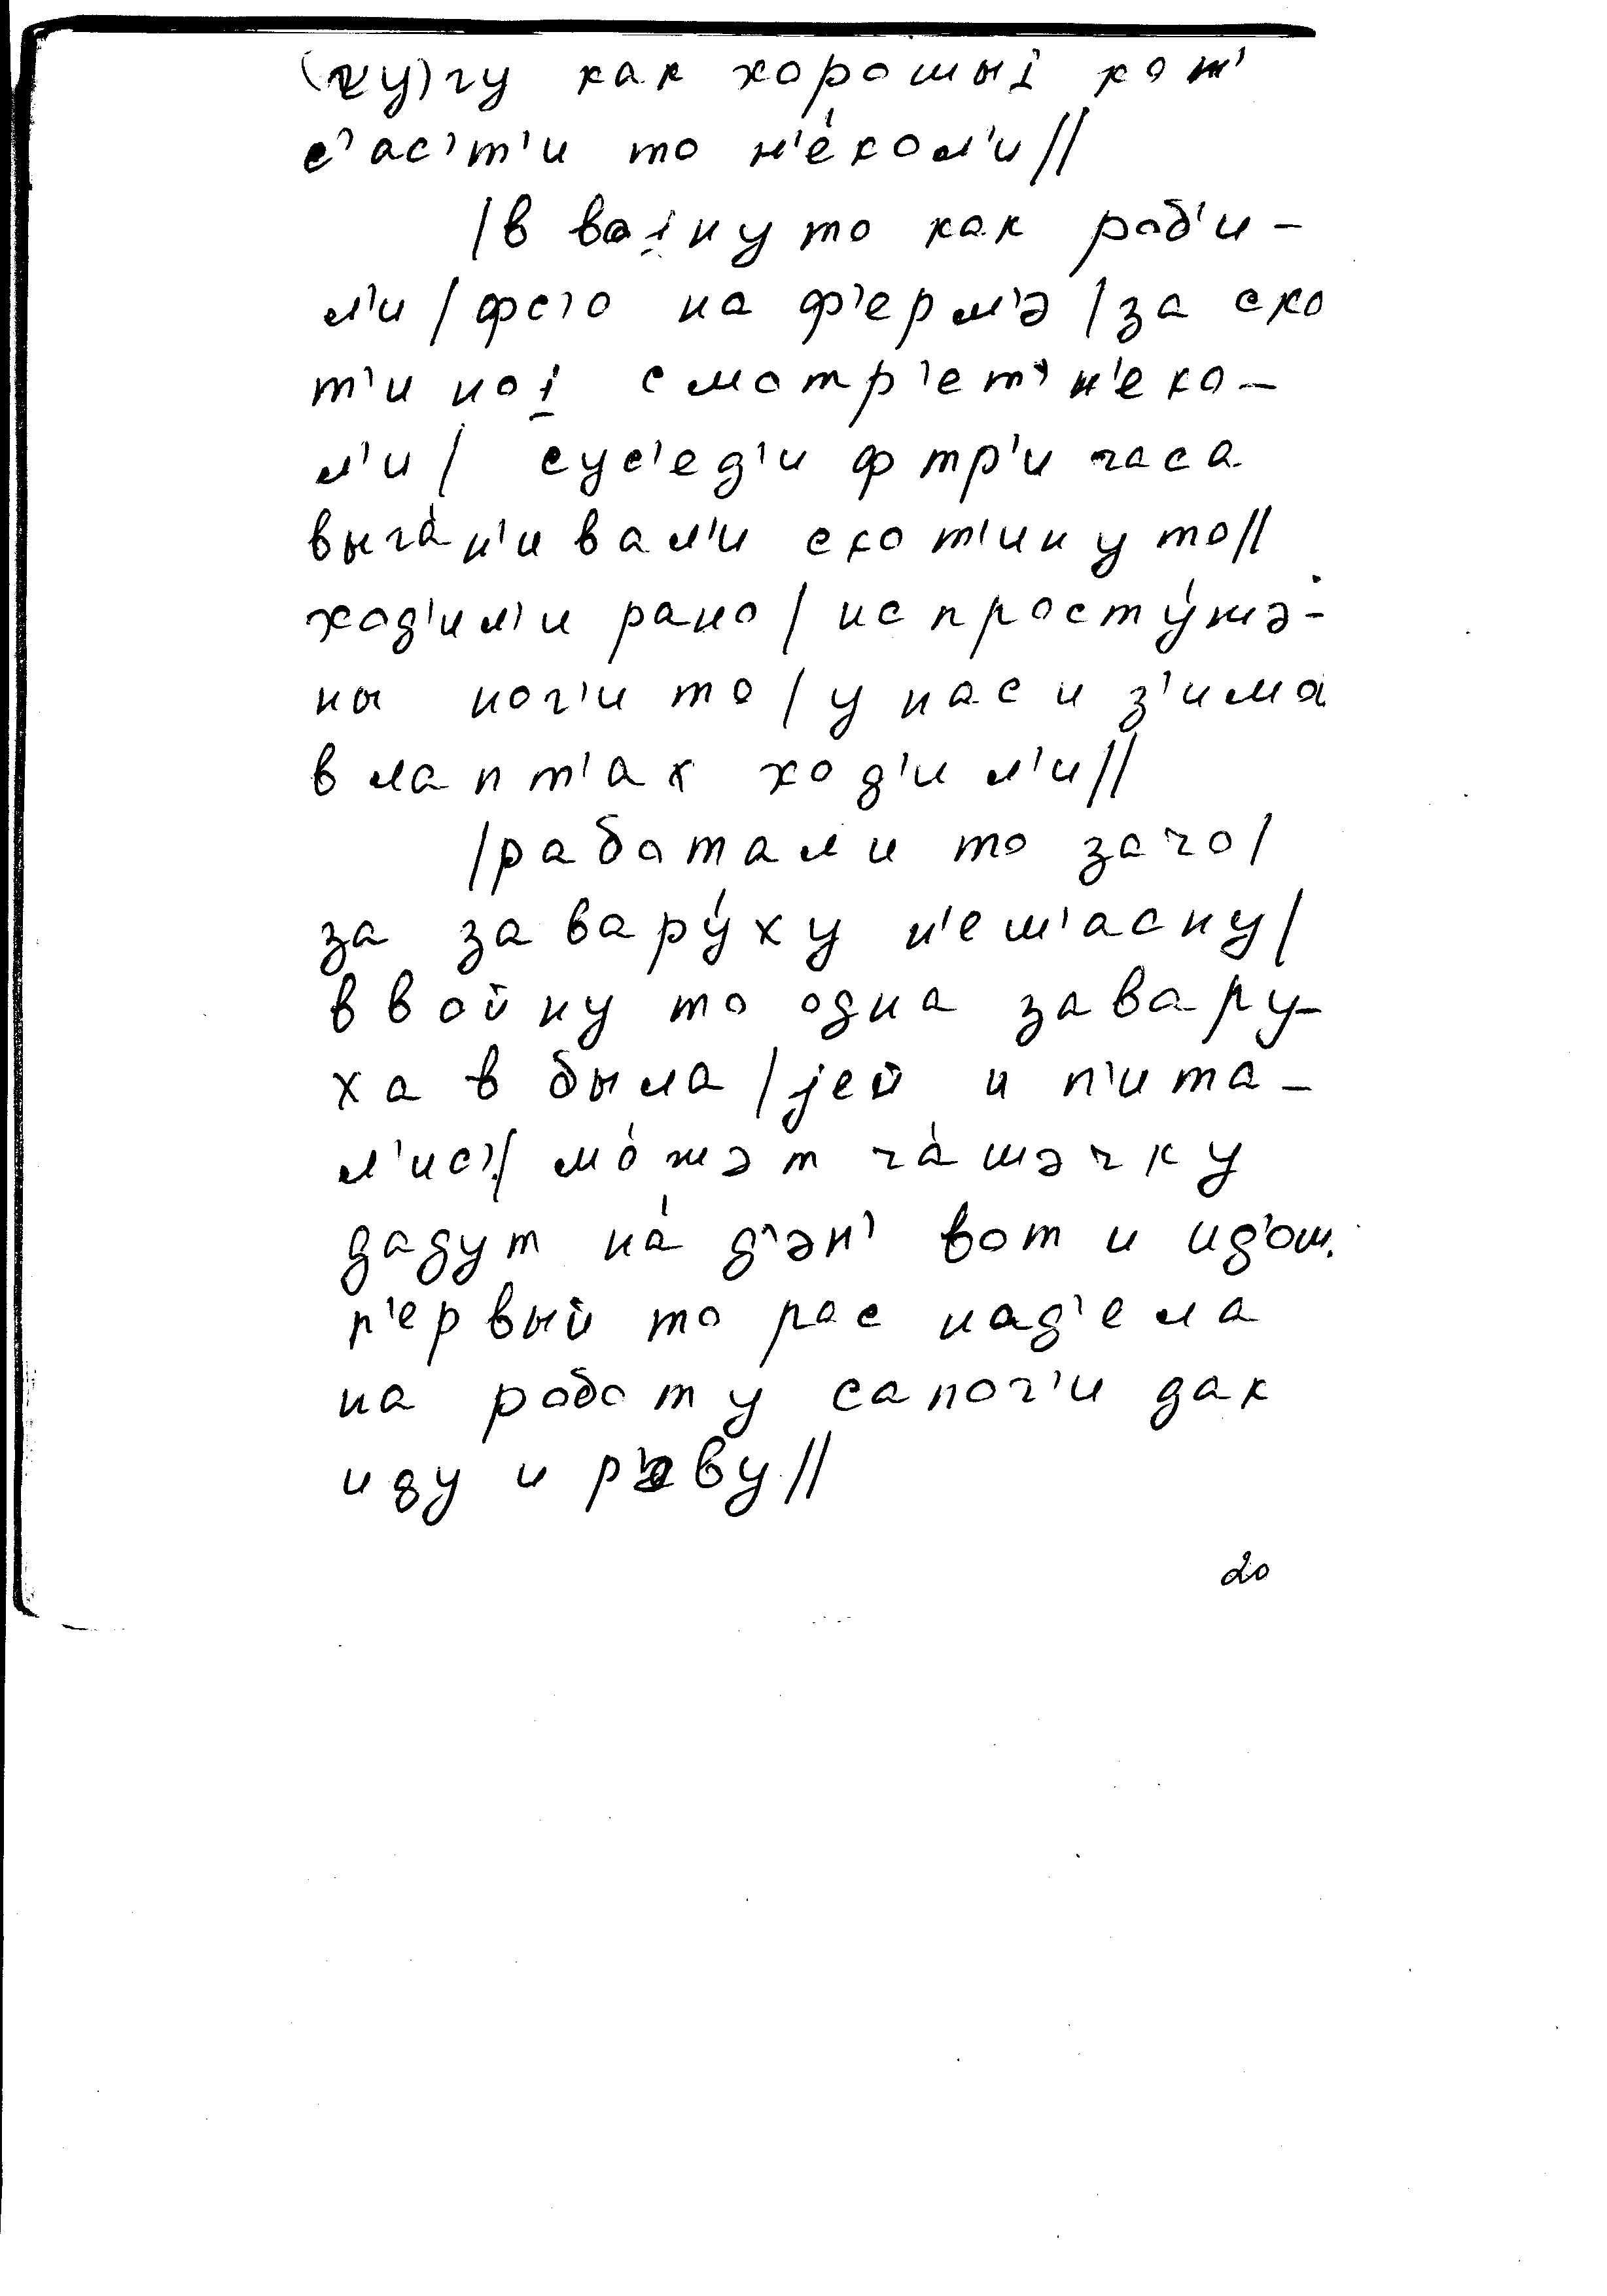 (гу)гу как хорошыі кот'
с'ас'т'и то н'е́кол'и//
/в воі̯ну то как роб'и-
л'и/фс'о на ф'ерм'э/за ско
т'иноі̯ смотр'ет' н'еко-
л'и/ сус'ед'и ф тр'и часа
выга́н'ивал'и скот'ину то//
ход'ил'и рано/испросту́жэ-
ны ног'и то/у нас и з'има
в лапт'ах ход'ил'и//
/работали то зачо/
за завару́ху н'еш'асну/
в войну то одна завару-
ха в была/jей и п'ита-
л'ис'/мо́жэт ча́шэчку
дадут на́ д'эн' вот и ид'ош.
п'ервый то рас над'ела
на роботу сапог'и дак
иду и р'еву//
20